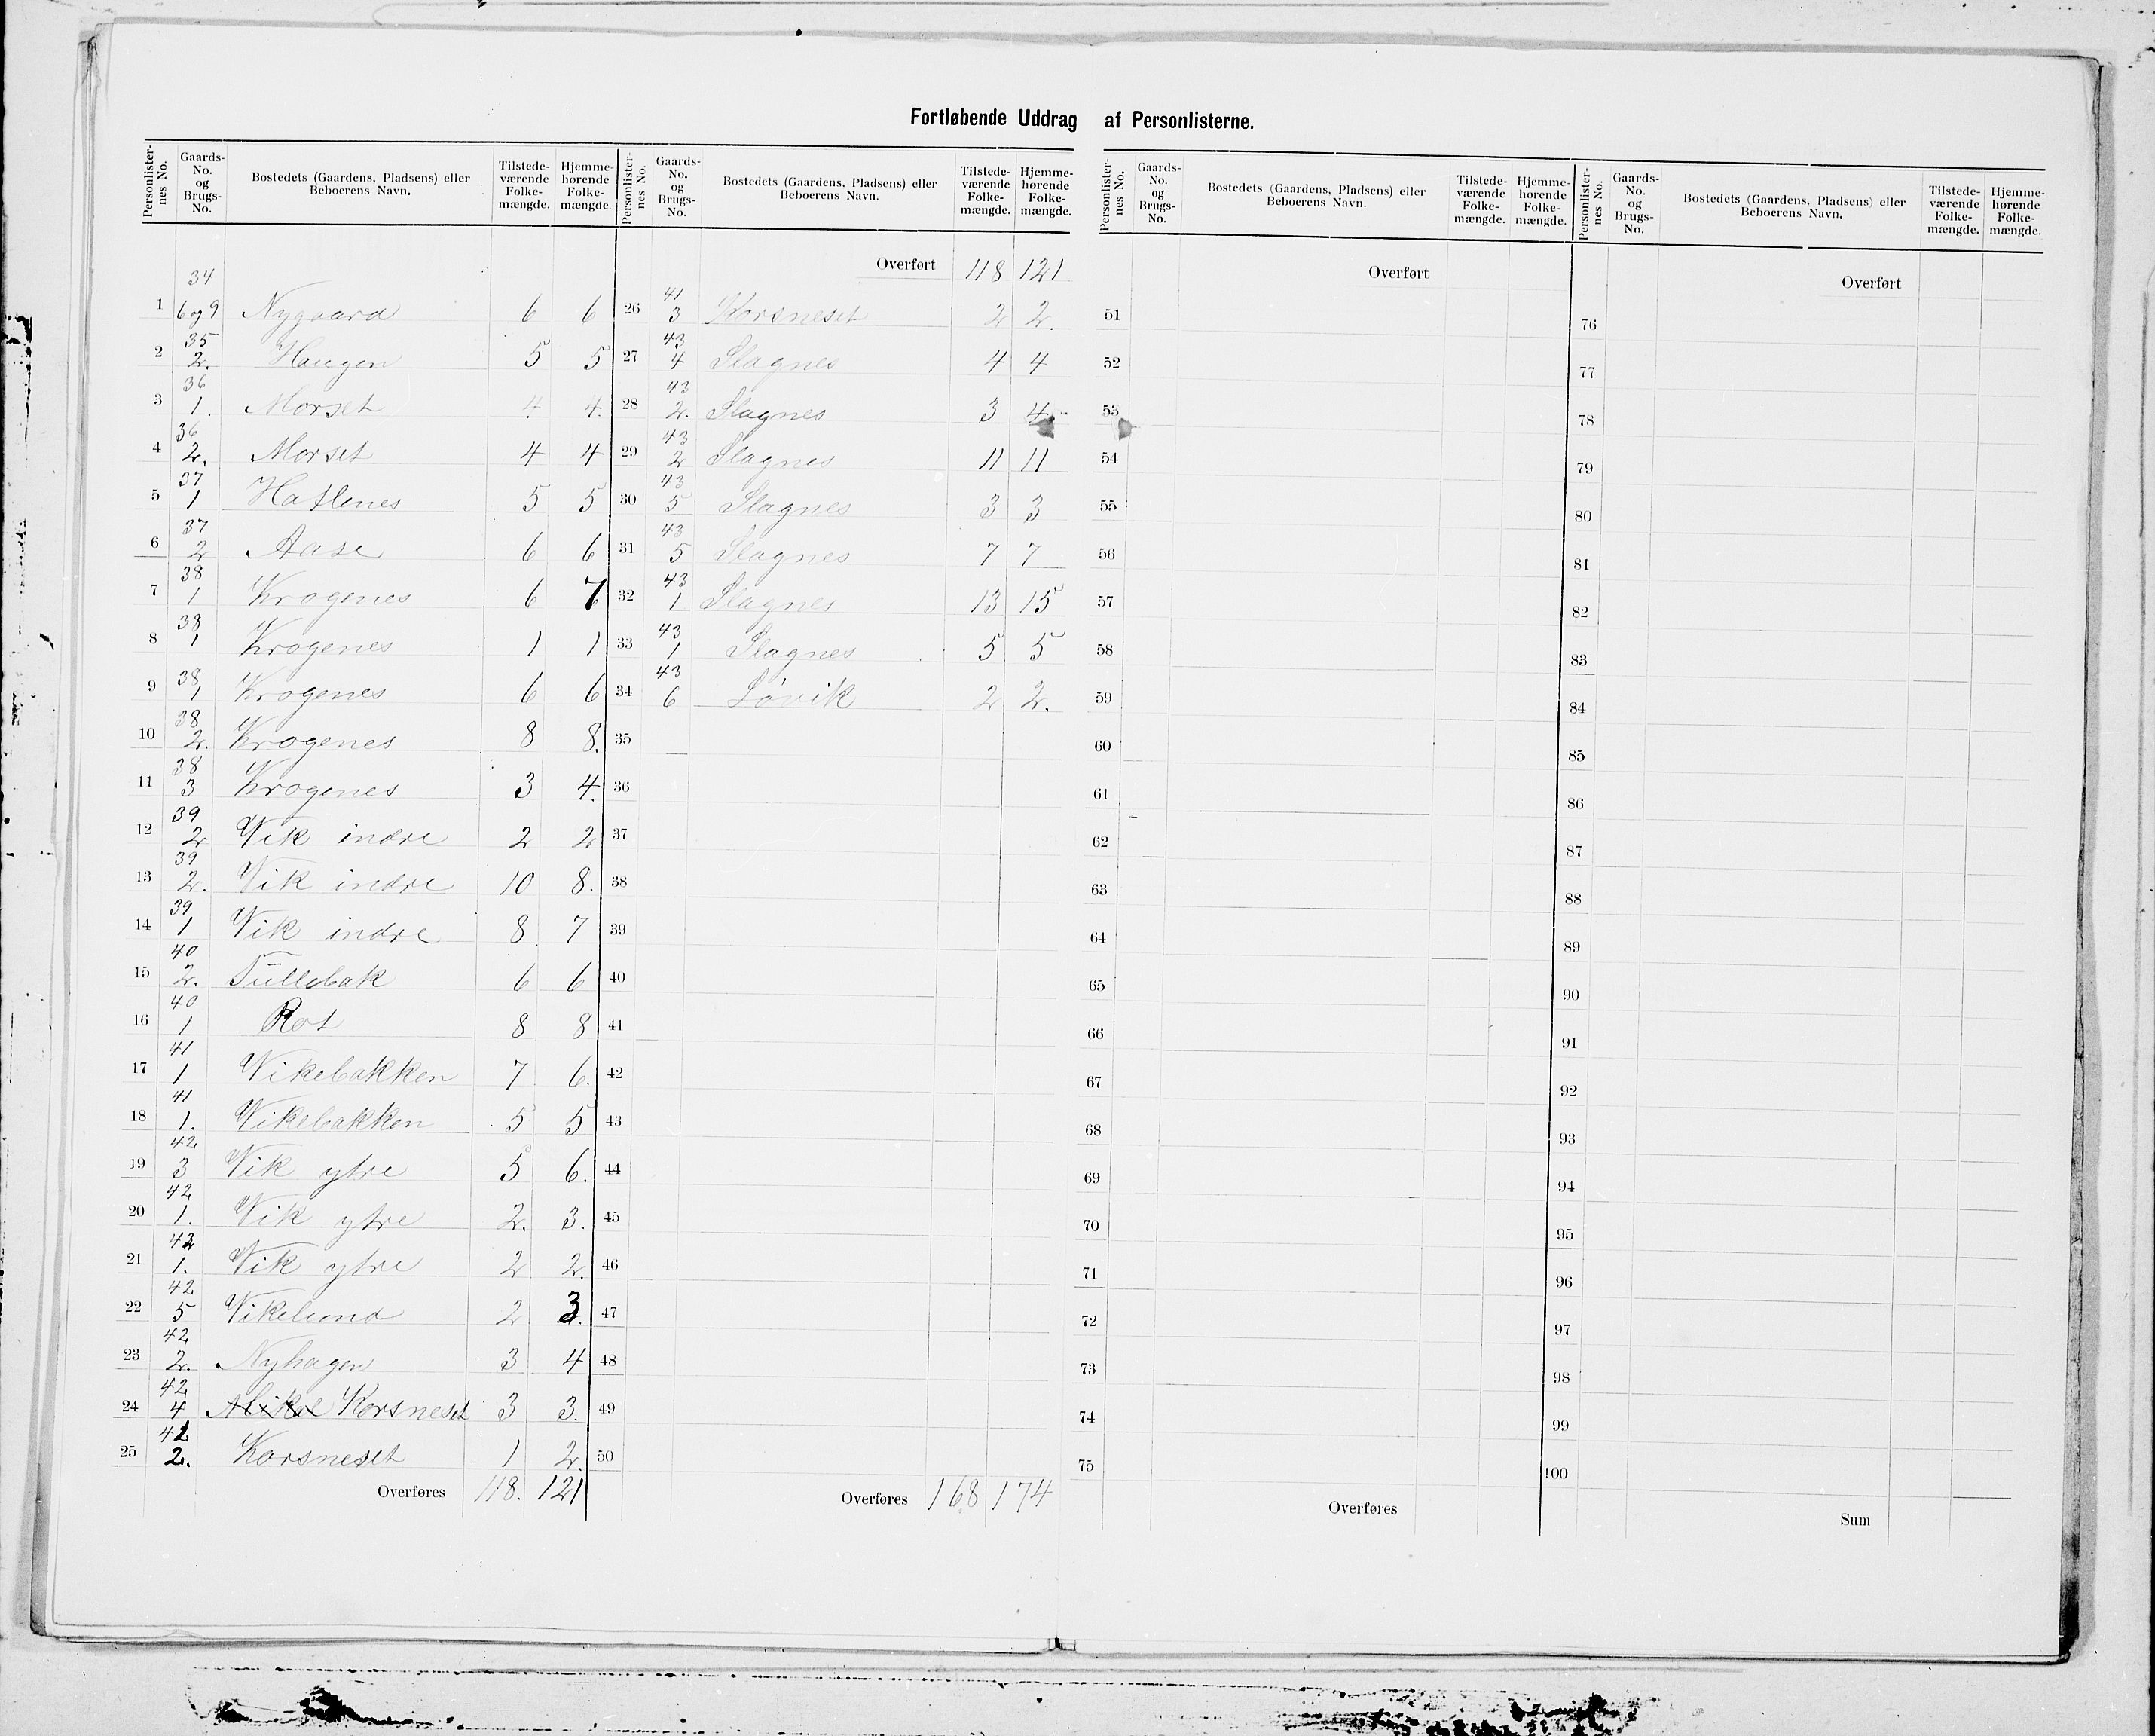 Fortløbende Uddrag af Personlisterne.
Personlister-nes No. | Gaards-No. og Brugs-No. | Bostedets (Gaardens, Pladsens) eller Beboerens Navn. | Tilstede-værende Folke-mængde. | Hjemme-hørende Folke-mængde.
1 | 34 6 og 9 | Nygaard | 6 | 6
2 | 35 2. | Haugen | 5 | 5
3 | 36 1. | Morset | 4. | 4.
4 | 36 2. | Morset | 4 | 4
5 | 37 1 | Hatlenes | 5 | 5
6 | 37 2 | Aase | 6 | 6
7 | 38 1 | Krogenes | 6 | 7
8 | 38 1 | Krogenes | 1 | 1
9 | 38 1 | Krogenes | 6 | 6
10 | 38 2. | Krogenes | 8 | 8.
11 | 38 3 | Krogenes | 3 | 4.
12 | 39 2 | Vik indre | 2 | 2
13 | 39 2. | Vik indre | 10 | 8.
14 | 39 1 | Vik indre | 8. | 7
15 | 40 2. | Tullebak | 6 | 6
16 | 40 1 | Rot | 8 | 8
17 | 41 1 | Vikebakken | 7 | 6.
18 | 41 1. | Vikebakken | 5 | 5
19 | 42 3 | Vik ytre | 5 | 6.
20 | 42 1. | Vik ytre | 2. | 3.
21 | 42 1. | Vik ytre | 2 | 2.
22 | 42 5 | Vikelund | 2 | 3.
23 | 42 2. | Nyhagen | 3 | 4
24 | 42 4 | Korsneset | 3 | 3.
25 | 42 2. | Korsneset | 1 | 2.
Overføres | 118. | 121
Personlister-nes No. | Gaards-No. og Brugs-No. | Bostedets (Gaardens, Pladsens) eller Beboerens Navn. | Tilstede-værende Folke-mængde. | Hjemme-hørende Folke-mængde.
Overført | 118 | 121
26 | 41 3 | Korsneset | 2 | 2.
27 | 43 4 | Slagnes | 4 | 4
28 | 43 2. | Slagnes | 3 | 4.
29 | 43 2 | Slagnes | 11 | 11
30 | 43 5 | Slagnes | 3 | 3
31 | 43 5 | Slagnes | 7 | 7
32 | 43 1 | Slagnes | 13 | 15
33 | 43 1 | Slagnes | 5 | 5
34 | 43 6 | Løvik | 2 | 2.
35
36
37
38
39
40
41
42
43
44
45
46
47
48
49
50
Overføres | 168 | 174
Personlister-nes No. | Gaards-No. og Brugs-No. | Bostedets (Gaardens, Pladsens) eller Beboerens Navn. | Tilstede-værende Folke-mængde. | Hjemme-hørende Folke-mængde.
Overført
51
52
53
54
55
56
57
58
59
60
61
62
63
64
65
66
67
68
69
70
71
72
73
74
75
Overføres
Personlister-nes No. | Gaards-No. og Brugs-No. | Bostedets (Gaardens, Pladsens) eller Beboerens Navn. | Tilstede-værende Folke-mængde. | Hjemme-hørende Folke-mængde.
Overført
76
77
78
79
80
81
82
83
84
85
86
87
88
89
90
91
92
93
94
95
96
97
98
99
100
Sum